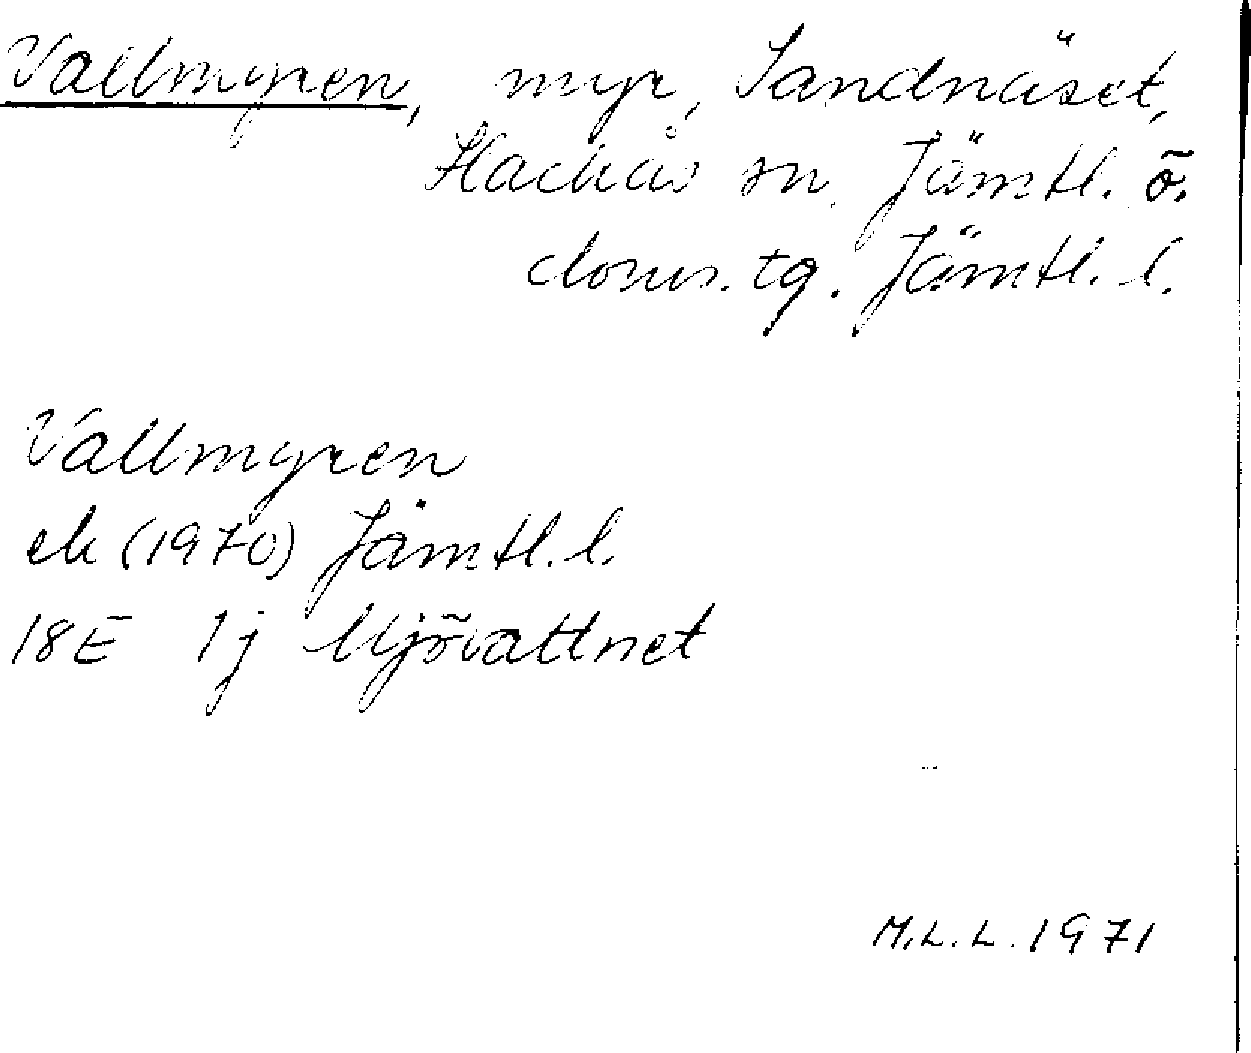 Vallmyren, myr, Sandnäset,
Hackås sn. Jämtl. ö.
doms. tg. Jämtl. l.
Vallmyren
ek (1970) Jämtl. l.
18E 1j Mjövattnet
M.L.L. 1971